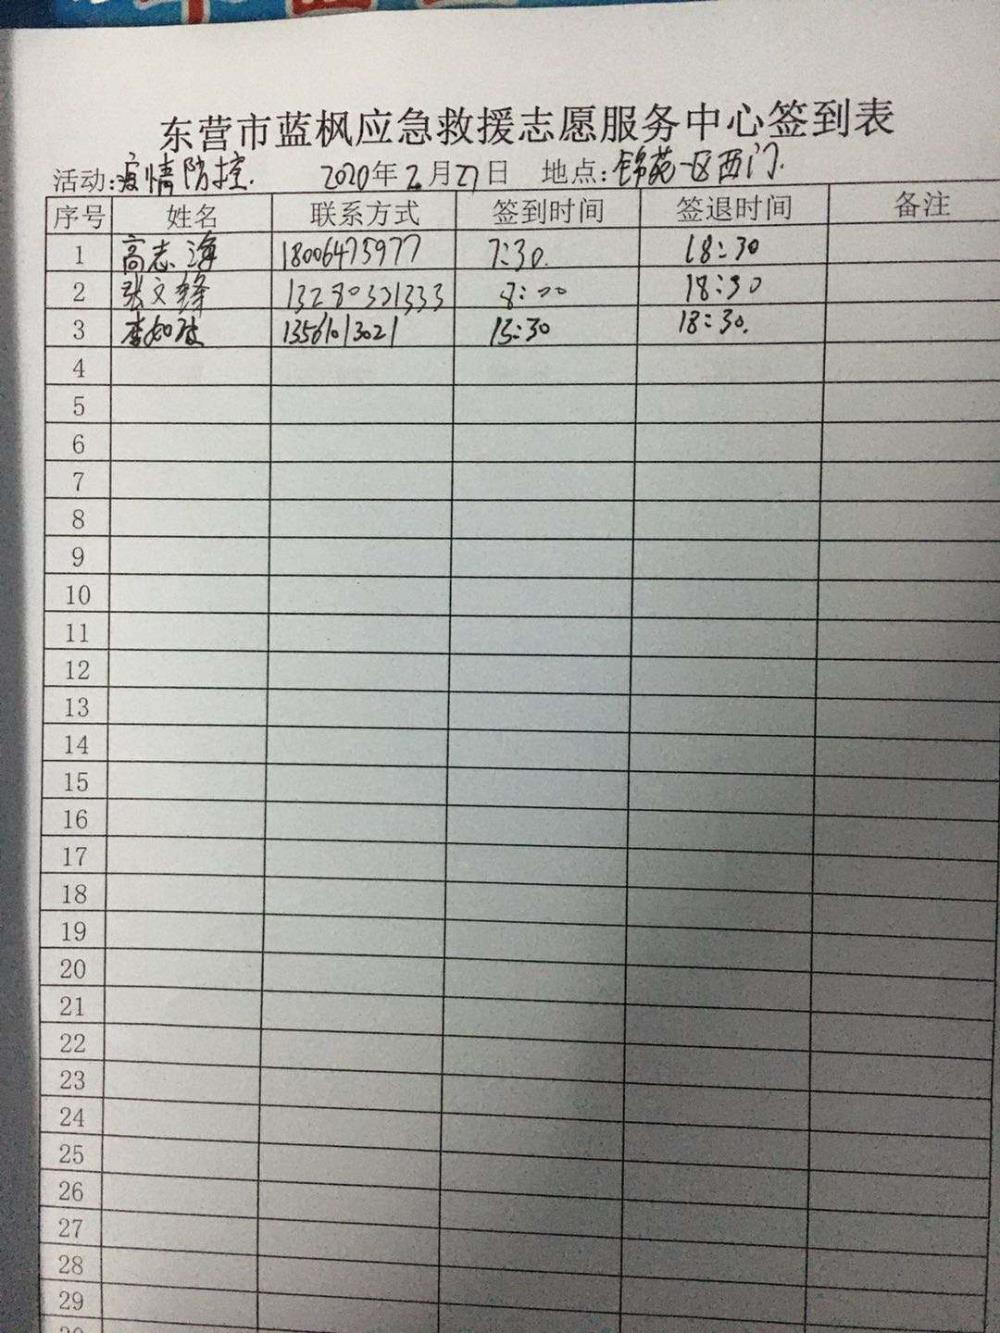 东营市蓝枫应急救援志愿服务中心签到表
活动:疫情防控. 2020年2月27日 地点:锦苑一区西门.
序号 姓名 联系方式 签到时间 签退时间 备注
1 高志海 18006475977 7:30. 18:30
2 张文锋 13280321333 8:00 18:30
3 李如 13561013021 15:30 18:30.
4
5
6
7
8
9
10
11
12
13
14
15
16
17
18
19
20
21
22
23
24
25
26
27
28
29